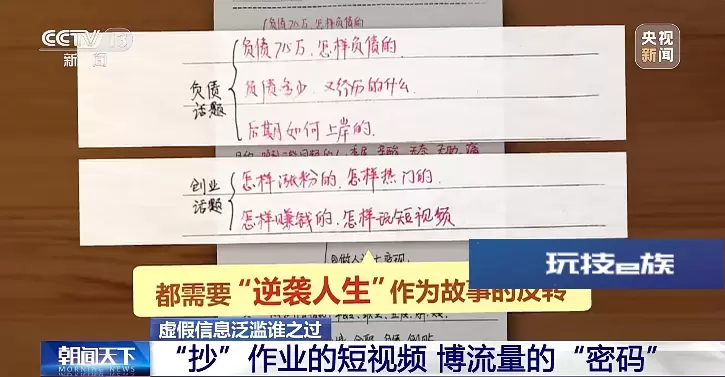 CCTV 13
新闻
央视新闻
负债75万、怎样负债的
负债话题
负债多少、又经历的什么
后期如何上岸的
创业话题
怎样涨粉的、怎样热门的
怎样赚钱的、怎样玩短视频
玩技e族
都需要“逆袭人生”作为故事的反转
虚假信息泛滥谁之过
朝闻天下
MORNING NEWS
“抄”作业的短视频 博流量的“密码”